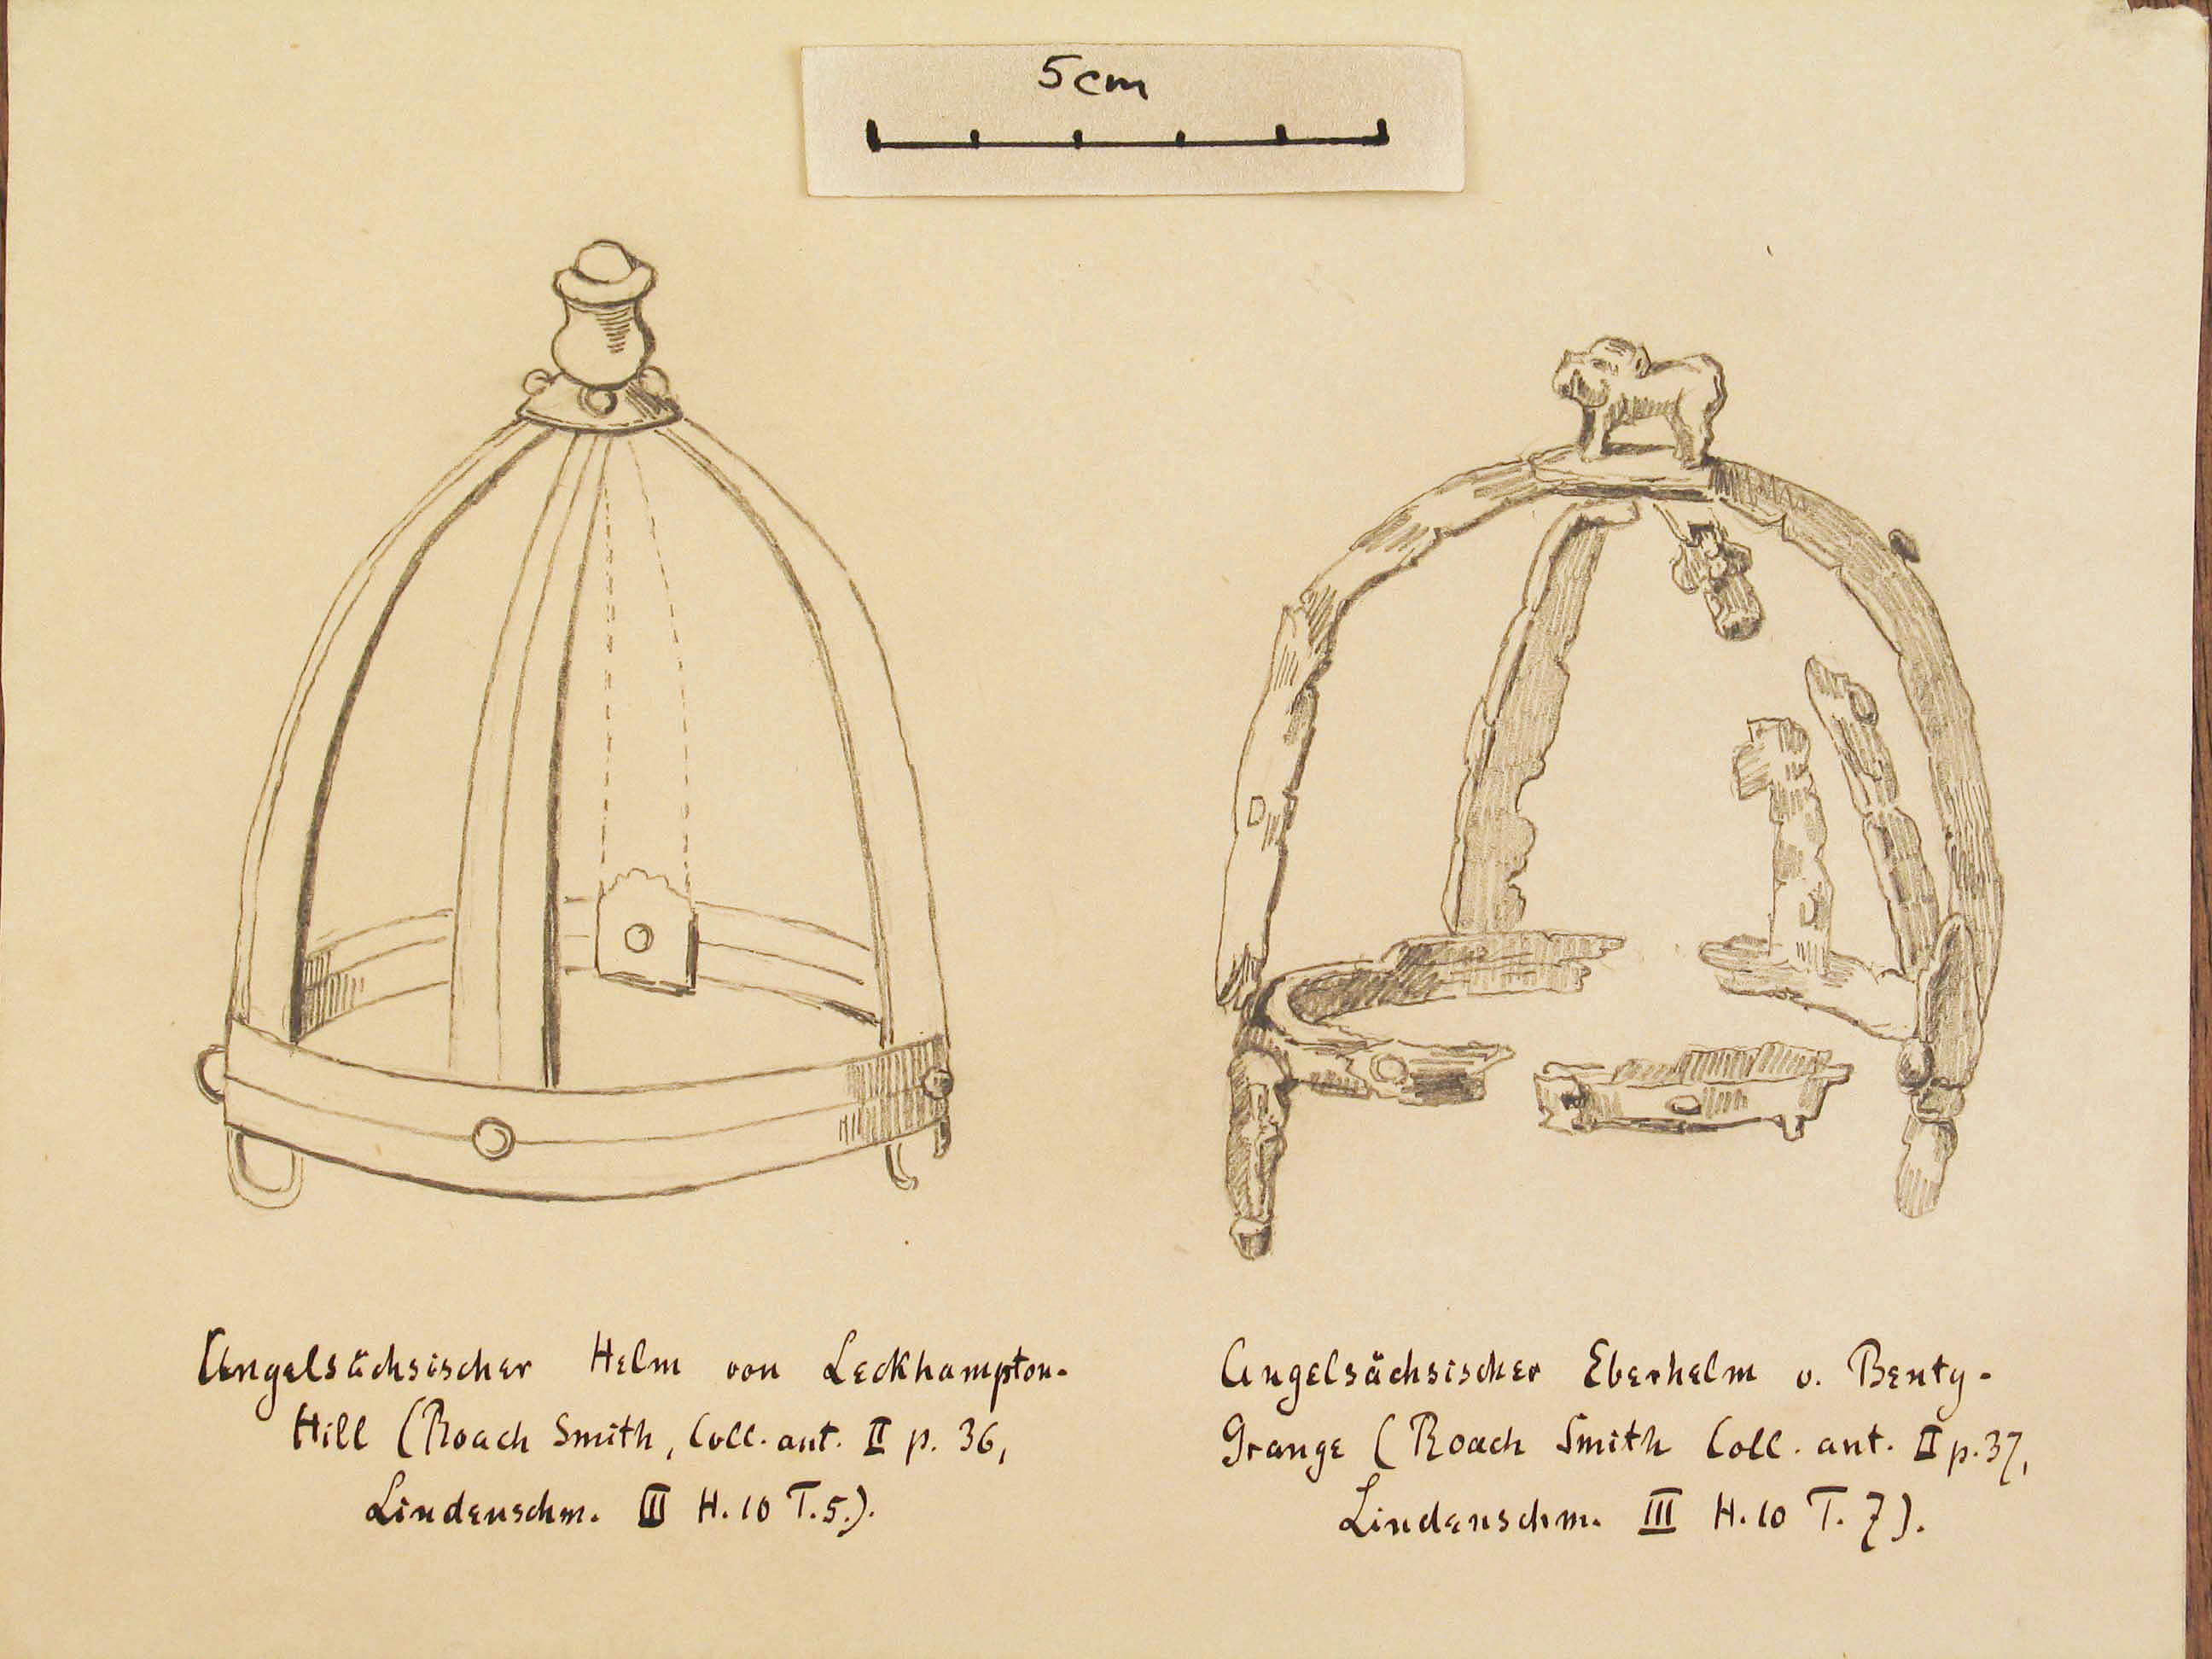 5cm
Angelsächsischer Helm von Leckhampton-
Hill (Roach Smith, Coll. ant. II p. 36,
Lindenschm. III H. 10 T. 5.).
Angelsächsischer Eberhelm v. Benty-
Grange (Roach Smith Coll. ant. II p. 37,
Lindenschm. III H. 10 T. 7).